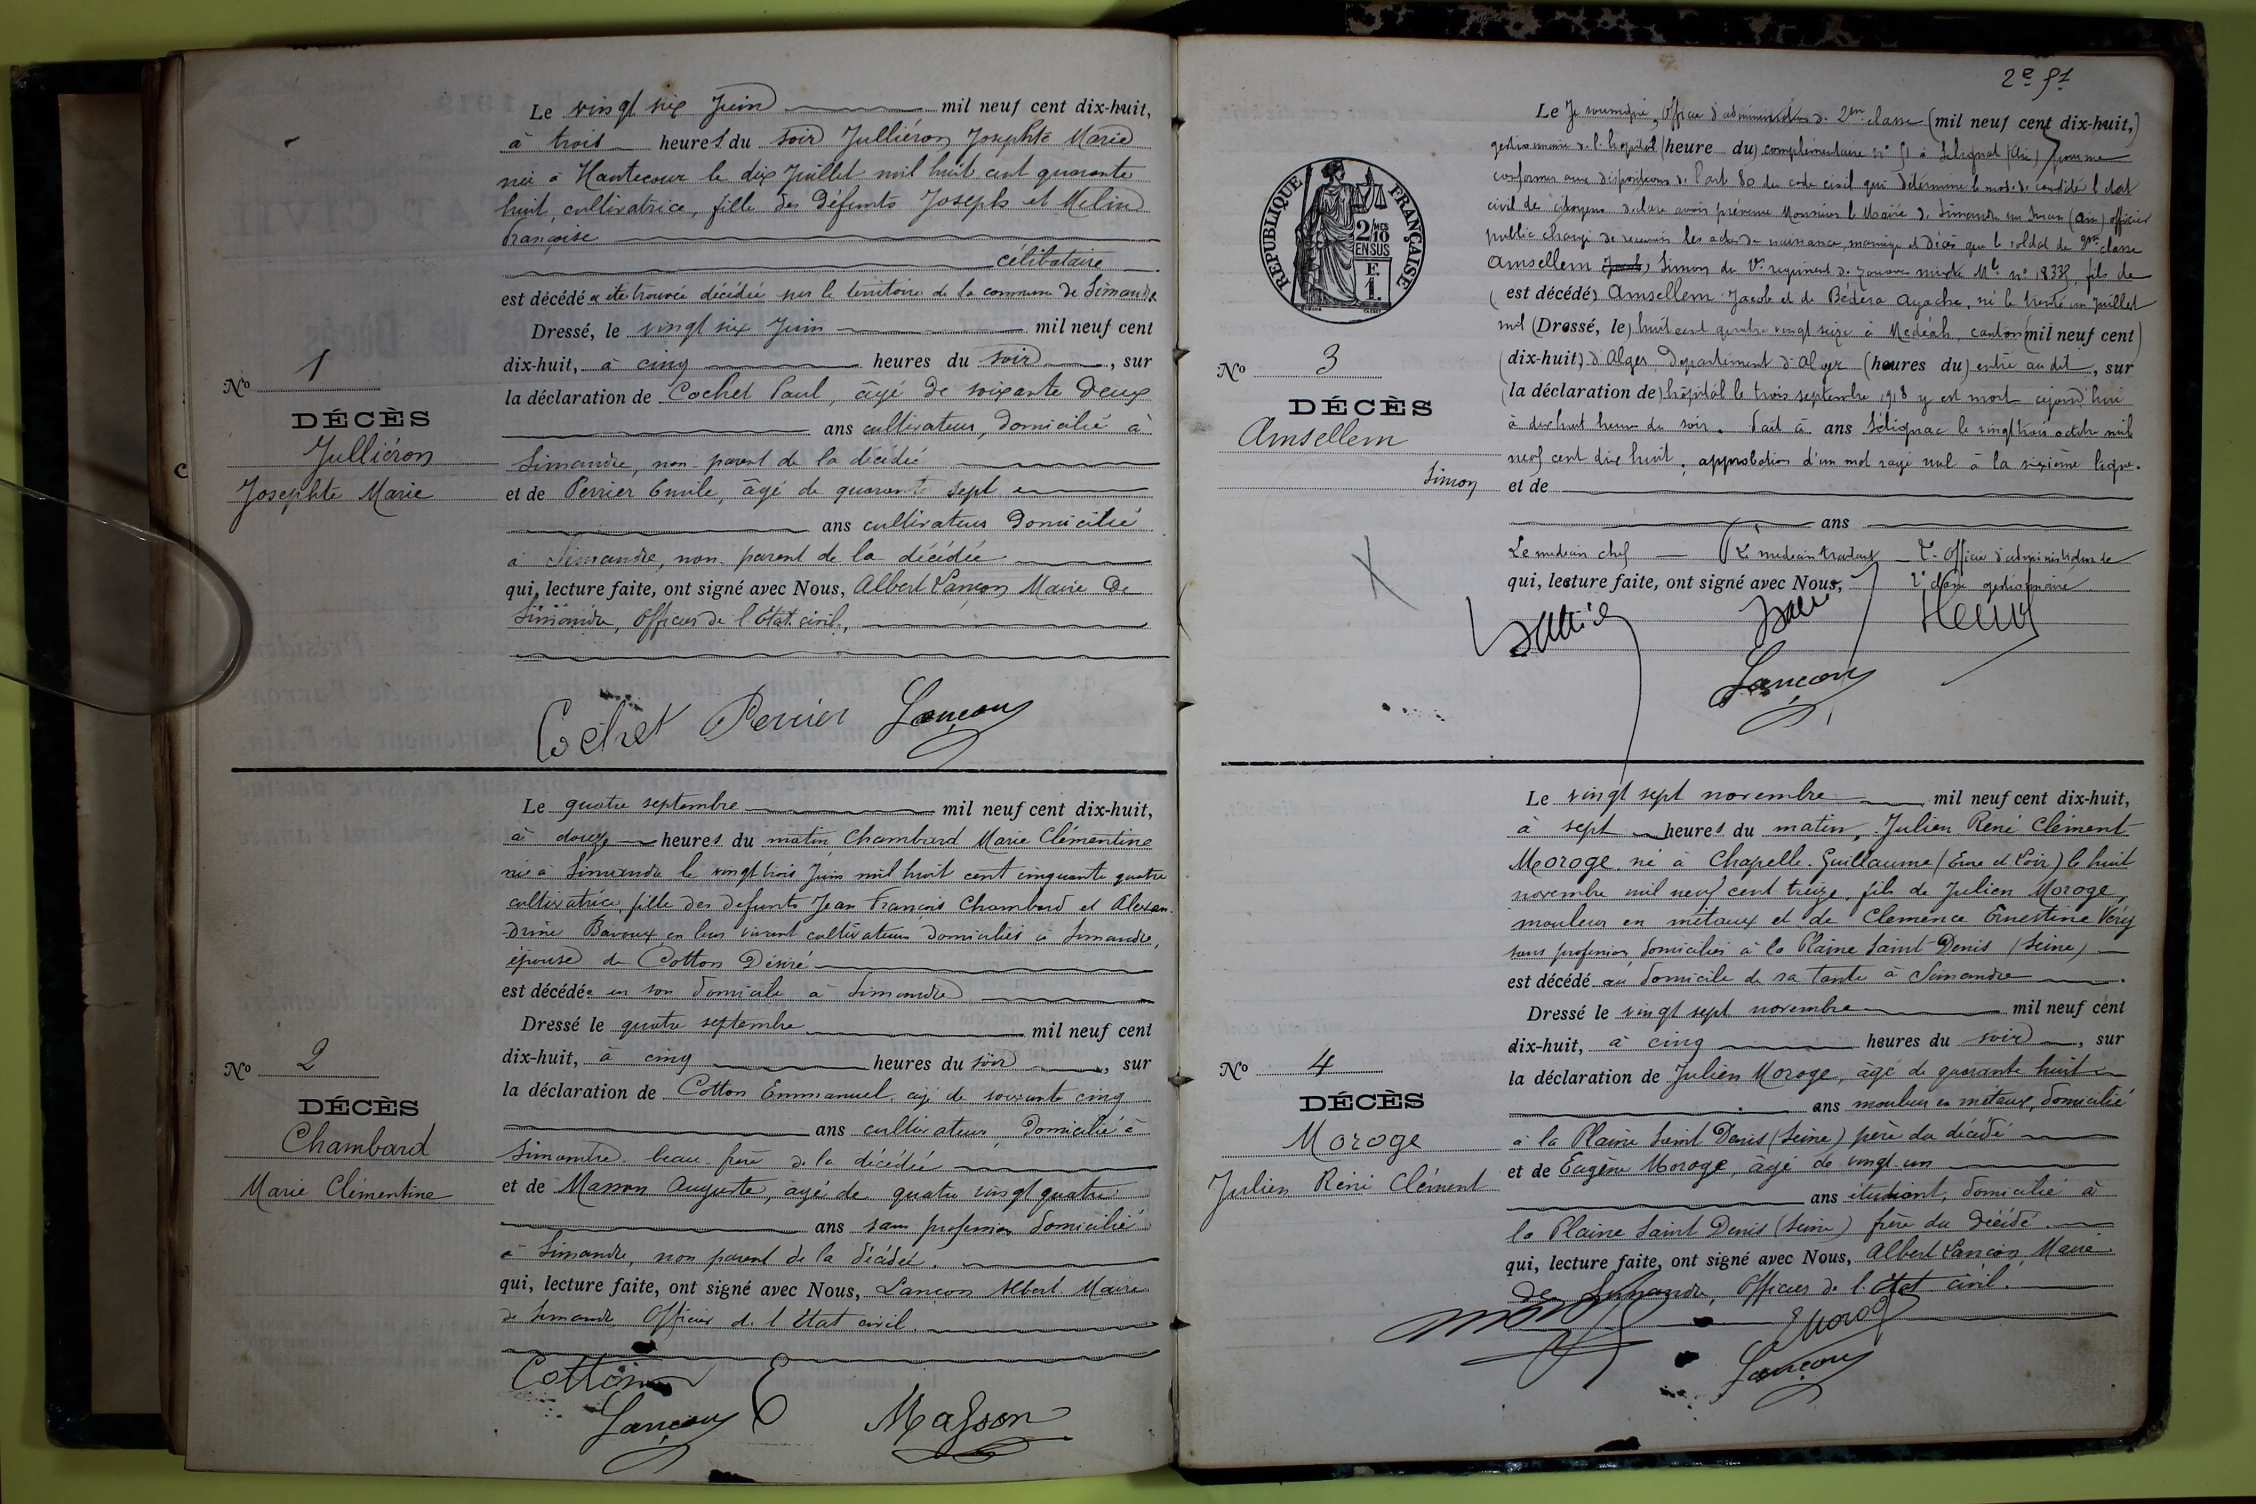 Le vingt six Juin mil neuf cent dix-huit,
à trois heures du soir Julliéron Josephte Marie
née à Hautecour le dix Juillet mil huit cent quarante
huit, cultivatrice, fille des défunts Joseph et Melin
Françoise
célibataire
est décédé a été trouvée décédée sur le territoire de la commune de Simandre
Dressé, le vingt six Juin mil neuf cent
dix-huit, à cinq heures du soir, sur
la déclaration de Cochet Paul, âgé de soixante deux
ans cultivateur, domicilié à
Simandre, non parent de la décédée
et de Perrier Emile, âgé de quarante sept
ans cultivateur domicilié
à Simandre, non parent de la décédée
qui, lecture faite, ont signé avec Nous, Albert Lançon Maire de
Simandre, Officier de l'état civil,
Cochet Perrier Lançon
No 1
DÉCÈS
Julliéron
Josephte Marie
Le quatre septembre mil neuf cent dix-huit,
à douze heures du matin Chambard Marie Clémentine
née à Simandre le vingt trois Juin mil huit cent cinquante quatre
cultivatrice, fille des défunts Jean François Chambard et Alexan-
drine Bavoux en leur vivant cultivateurs domiciliés à Simandre,
épouse de Cotton Désiré
est décédée en son domicile à Simandre
Dressé le quatre septembre mil neuf cent
dix-huit, à cinq heures du soir, sur
la déclaration de Cotton Emmanuel, âgé de soixante cinq
ans cultivateur domicilié à
Simandre beau-frère de la décédée
et de Masson Auguste, âgé de quatre vingt quatre
ans sans profession domicilié
à Simandre, non parent de la décédée.
qui, lecture faite, ont signé avec Nous, Lançon Albert Maire
de Simandre Officier de l'état civil.
Cotton E
Lançon Masson
No 2
DÉCÈS
Chambard
Marie Clémentine
2e
Le Je soussigné, Officier d'administration de 2me classe (mil neuf cent dix-huit,)
gestionnaire de l'hôpital (heure du) complémentaire n° 51 à Sélignac (Ain) pour me
conformer aux dispositions de l'art 80 du code civil qui détermine le mode de constater l'état
civil des citoyens déclare avoir prévenu Monsieur le Maire de Simandre sur Suran (Ain) officier
public chargé de recevoir les actes de naissance, mariage et décès que le soldat de 2me classe
Amsellem Jacob, Simon du régiment de zouaves mixte Mle n° 18335, fils de
(est décédé) Amsellem Jacob et de Bédera Ayache, né le trente un Juillet
mil (Dressé, le) huit cent quatre vingt seize à Médéah, canton (mil neuf cent)
(dix-huit) d'Alger, département d'Alger (heures du) entré au dit, sur
(la déclaration de) hôpital le trois septembre 1918 y est mort aujourd'hui
à dix huit heures du soir. Fait à ans Sélignac le vingt trois octobre mil
neuf cent dix huit, approbation d'un mot rayé nul à la sixième ligne.
et de
ans
Le médecin chef Le médecin traitant L'Officier d'administration de
qui, lecture faite, ont signé avec Nous, 2e classe gestionnaire
Lançon
RÉPUBLIQUE FRANÇAISE
2/10 MES
EN SUS
F.
1.
No 3
DÉCÈS
Amsellem
Simon
Le vingt sept novembre mil neuf cent dix-huit,
à sept heures du matin, Julien René Clément
Moroge né à Chapelle-Guillaume (Eure et Loir) le huit
novembre mil neuf cent treize, fils de Julien Moroge,
mouleur en métaux et de Clemence Ernestine Véry
sans profession, domiciliés à la Plaine Saint-Denis (Seine)
est décédé au domicile de sa tante à Simandre
Dressé le vingt sept novembre mil neuf cent
dix-huit, à cinq heures du soir, sur
la déclaration de Julien Moroge, âgé de quarante huit
ans mouleur en métaux, domicilié
à la Plaine Saint Denis (Seine) père du décédé
et de Eugène Moroge, âgé de vingt-un
ans étudiant, domicilié à
la Plaine Saint Denis (Seine) frère du décédé.
qui, lecture faite, ont signé avec Nous, Albert Lançon, Maire
de Simandre, Officier de l'état civil.
E Moroge
Lançon
No 4
DÉCÈS
Moroge
Julien René Clément